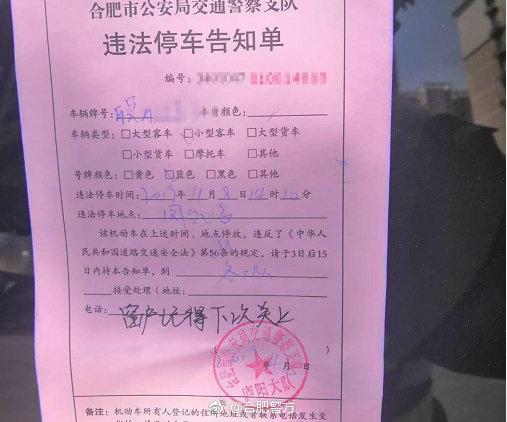 合肥市公安局交通警察支队
违法停车告知单
编号:
车辆牌号: 皖A 车身颜色:
车辆类型: □大型客车 □小型客车 □大型货车
□小型货车 □摩托车 □其他
号牌颜色: □黄色 □蓝色 □黑色 □其他
违法停车时间: 2019年11月8日14时10分
违法停车地点:
该机动车在上述时间、地点停放,违反了《中华人
民共和国道路交通安全法》第56条的规定,请于3日后15
日内持本告知单,到 各大队
接受处理(地址:
电话: 窗户记得下次关上
)
年 月 日
庐阳大队
备注: 机动车所有人登记的住所地址或者联系电话发生变
@合肥警方